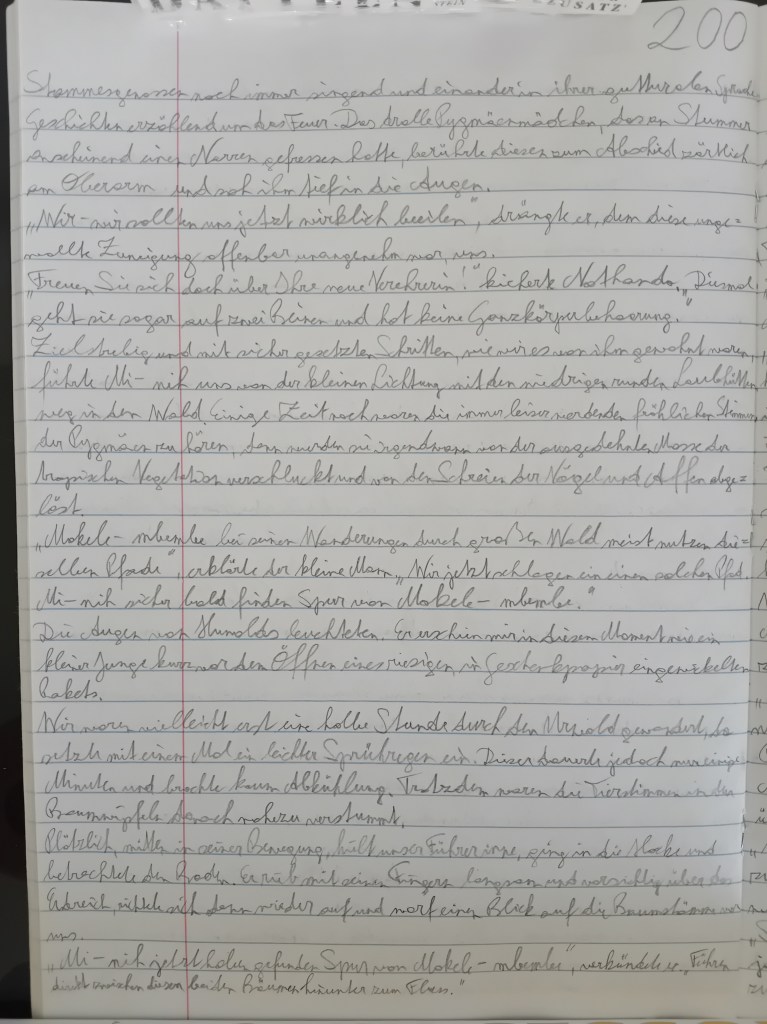 STEIN
SATZ
200
Stammesgenossen noch immer singend und einander in ihrer gutturalen Sprache
Geschichten erzählend um das Feuer. Das dralle Pygmäenmädchen, das an Stummer
anscheinend einen Narren gefressen hatte, berührte diesen zum Abschied zärtlich
am Oberarm und sah ihm tief in die Augen.
„Wir – wir sollten uns jetzt wirklich beeilen“, drängte er, dem diese unge=
wollte Zuneigung offenbar unangenehm war, uns.
„Freuen Sie sich doch über Ihre neue Verehrerin!“ kicherte Nathando. „Diesmal
geht sie sogar auf zwei Beinen und hat keine Ganzkörperbehaarung.“
Zielstrebig und mit sicher gesetzten Schritten, wie wir es von ihm gewohnt waren,
führte Mi-nih uns von der kleinen Lichtung mit den niedrigen runden Laubhütten
weg in den Wald. Einige Zeit noch waren die immer leiser werdenden fröhlichen Stimmen
der Pygmäen zu hören, dann wurden sie irgendwann von der ausgedehnten Masse der
tropischen Vegetation verschluckt und von den Schreien der Vögel und Affen abge=
löst.
„Mokele-mbembe bei seinen Wanderungen durch großen Wald meist nutzen die=
selben Pfade“, erklärte der kleine Mann. „Wir jetzt schlagen ein einen solchen Pfad.
Mi-nih sicher bald finden Spur von Mokele-mbembe.“
Die Augen von Humolds leuchteten. Er erschien mir in diesem Moment wie ein
kleiner Junge kurz vor dem Öffnen eines riesigen, in Geschenkpapier eingewickelten
Pakets.
Wir waren vielleicht erst eine halbe Stunde durch den Urwald gewandert, da
setzte mit einem Mal ein leichter Sprühregen ein. Dieser dauerte jedoch nur einige
Minuten und brachte kaum Abkühlung. Trotzdem waren die Tierstimmen in den
Baumwipfeln danach nahezu verstummt.
Plötzlich, mitten in seiner Bewegung, hielt unser Führer inne, ging in die Hocke und
betrachtete den Boden. Er rieb mit seinen Fingern langsam und vorsichtig über das
Erdreich, richtete sich dann wieder auf und warf einen Blick auf die Baumstämme vor
uns.
„Mi-nih jetzt haben gefunden Spur von Mokele-mbembe“, verkündete er. „Führen
direkt zwischen diesen beiden Bäumen hinunter zum Fluss.“